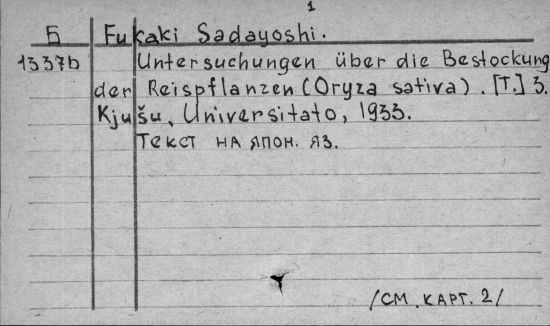 1
Б Fukaki Sadayoshi.
1337b Untersuchungen über die Bestockung
der Reispflanzen (Oryza sativa). [T.] 3.
Kjušu, Universitato, 1933.
Текст на япон. яз.
/См. карт. 2/